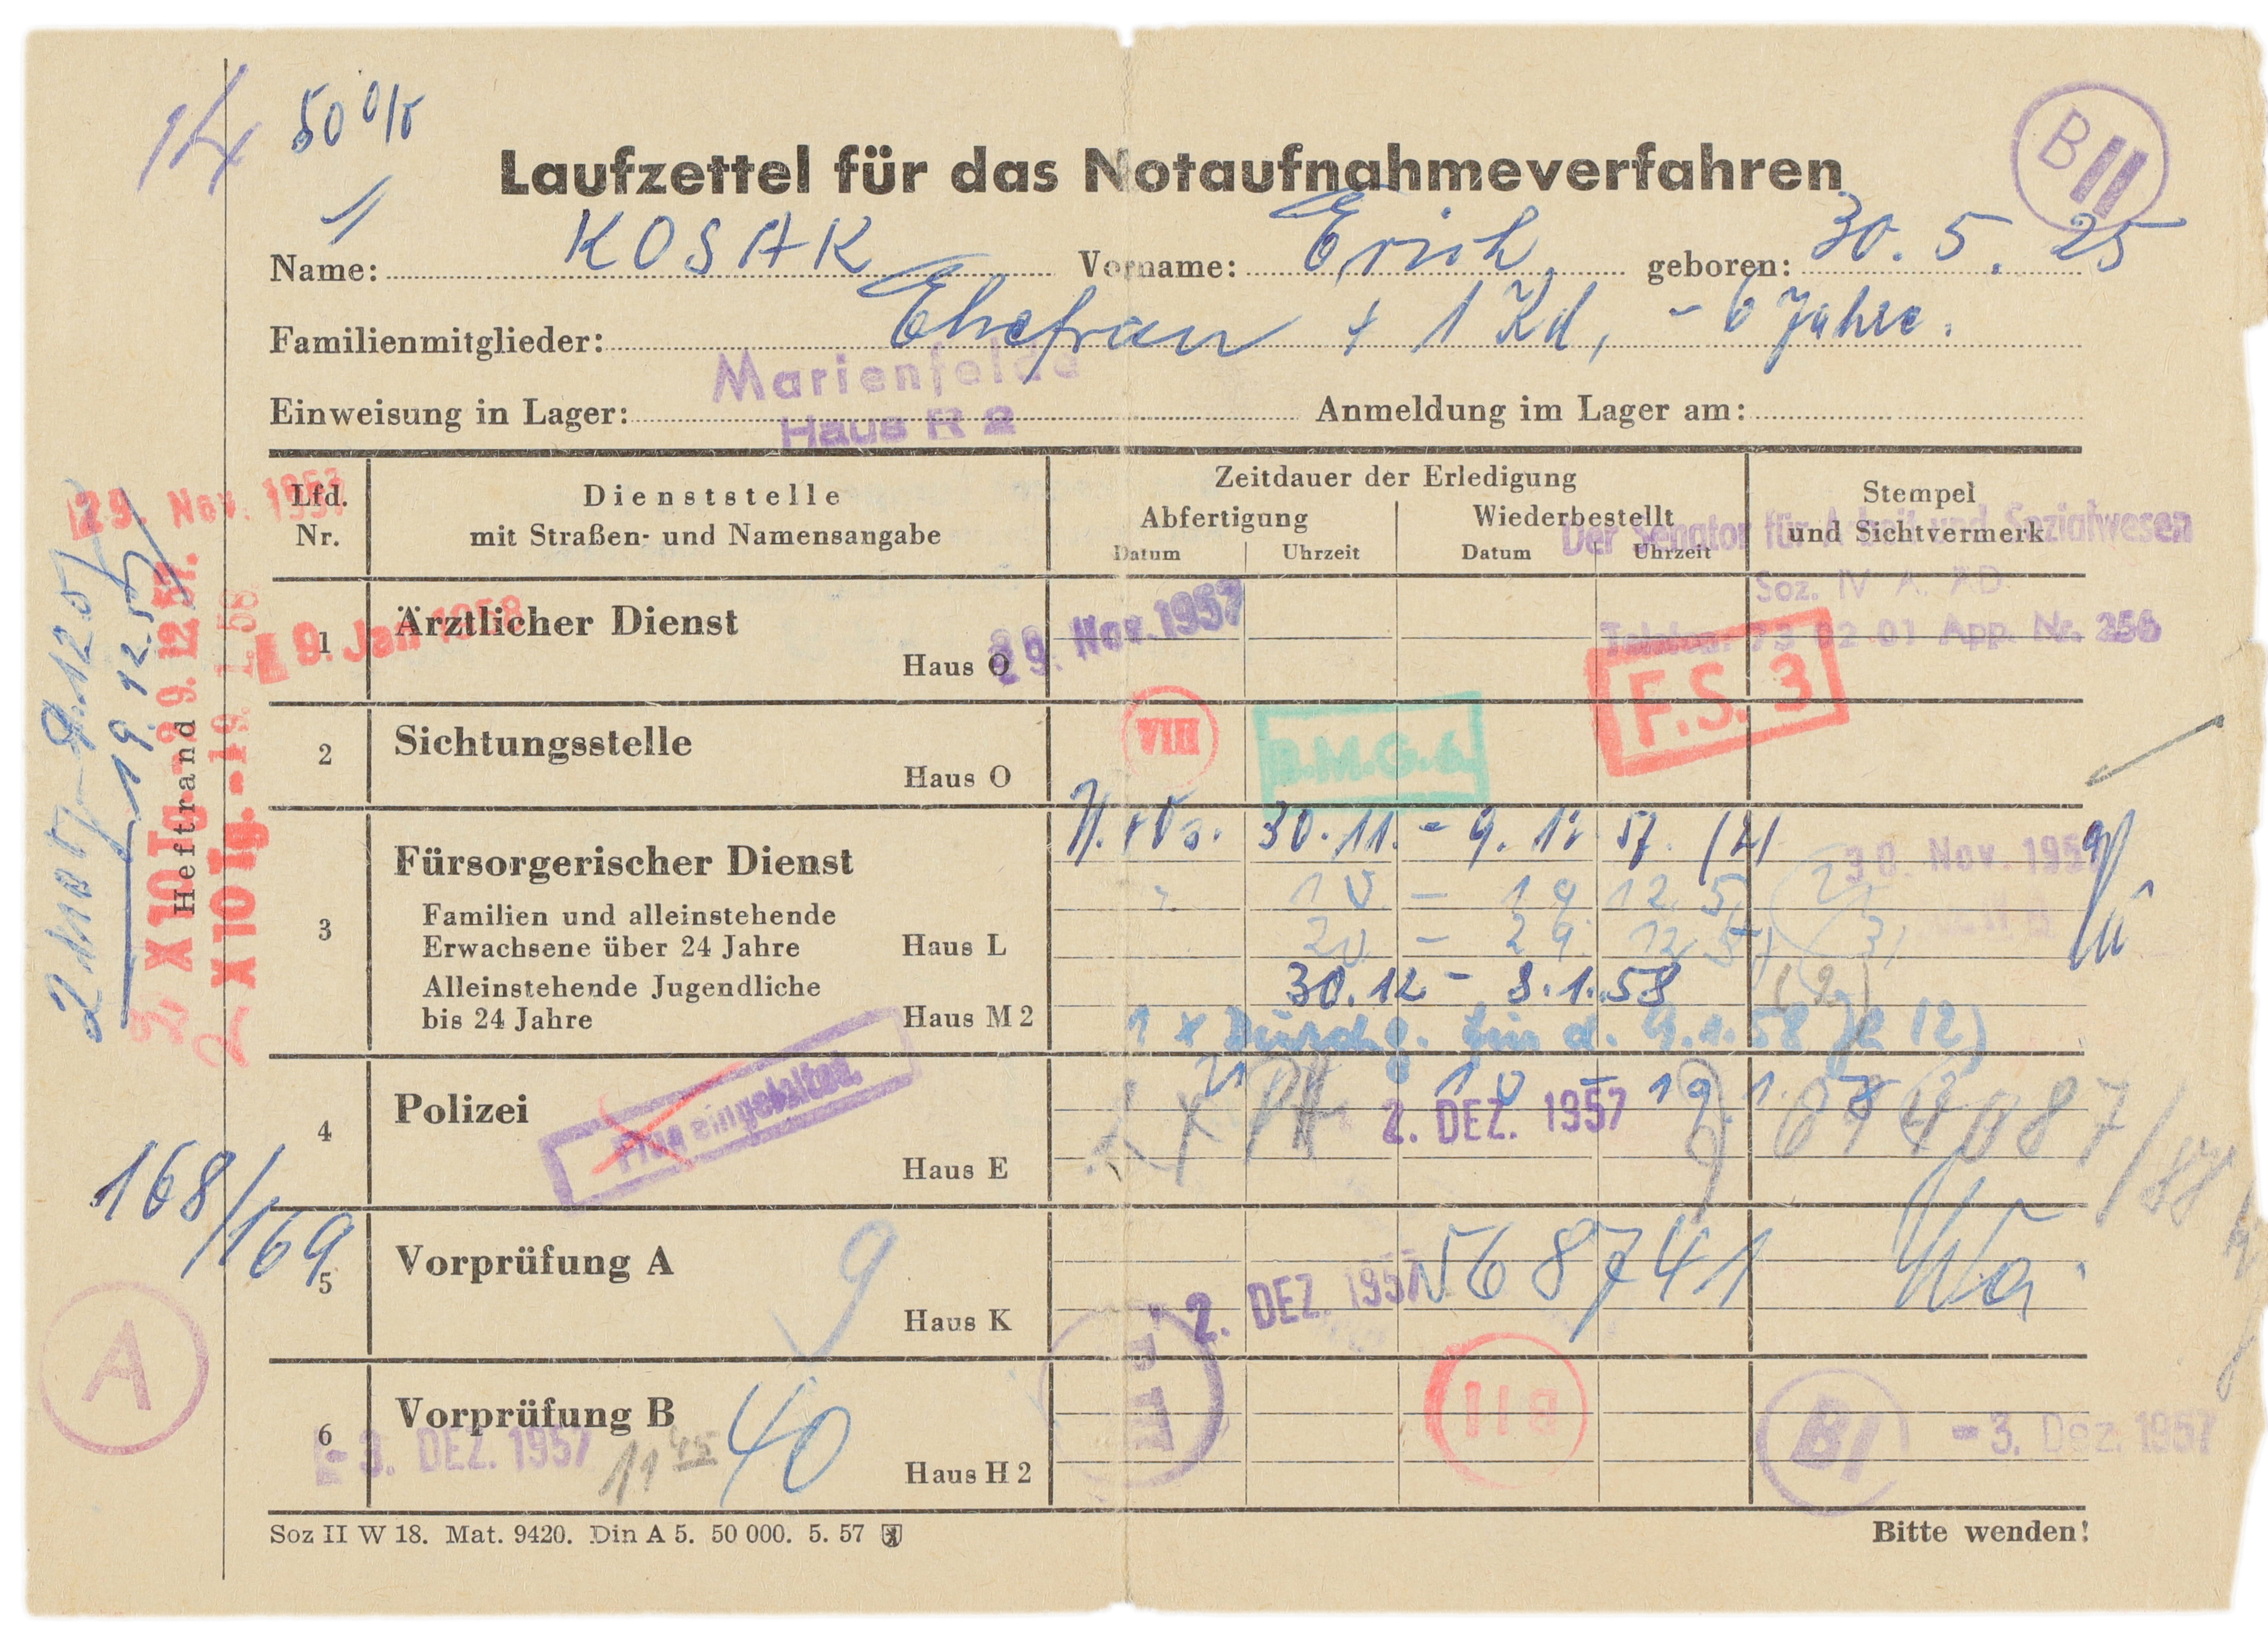 14 50 %
Laufzettel für das Notaufnahmeverfahren
B II
Name: KOSAK Vorname: Erich geboren: 30. 5. 25
Familienmitglieder: Ehefrau + 1 Kd, - 6 Jahre.
Marienfelde
Einweisung in Lager: Haus R 2 Anmeldung im Lager am:
29. Nov. 1957
Lfd. Nr.
Dienststelle
mit Straßen- und Namensangabe
Zeitdauer der Erledigung
Abfertigung Wiederbestellt
Datum Uhrzeit Datum Uhrzeit
Stempel
und Sichtvermerk
Der Senator für Arbeit und Sozialwesen
Soz. IV A. ÄD
Telefon: 73 02 01 App. Nr. 256
1 Ärztlicher Dienst
Haus O
29. Nov. 1957
9. Jan 1958
F.S. 3
2 Sichtungsstelle
Haus O
VIII
B.M.G.6.
3 Fürsorgerischer Dienst
Familien und alleinstehende
Erwachsene über 24 Jahre Haus L
Alleinstehende Jugendliche
bis 24 Jahre Haus M 2
30. 11. - 9. 12 57. (2)
30. Nov. 1957
10 - 19 12 57 (2)
20 - 29. 12 57 (3)
30. 12 - 8. 1. 58 (2)
1 x Durchg. für d. 9. 1. 58 (2)
10 - 19. 1. 58
4 Polizei
Haus E
2. DEZ. 1957
eingehalten.
5 Vorprüfung A
Haus K
9
2. DEZ. 1957
568741
Wa.
6 Vorprüfung B
Haus H 2
- 3. DEZ. 1957
11 45
40
B II
B I
- 3. Dez. 1957
Heftrand
2 X 10 Tg. - 29. 12. 57.
2 X 10 Tg. - 19. 1. 58.
19. 12. 57
168/169
A
Soz II W 18. Mat. 9420. Din A 5. 50 000. 5. 57
Bitte wenden!